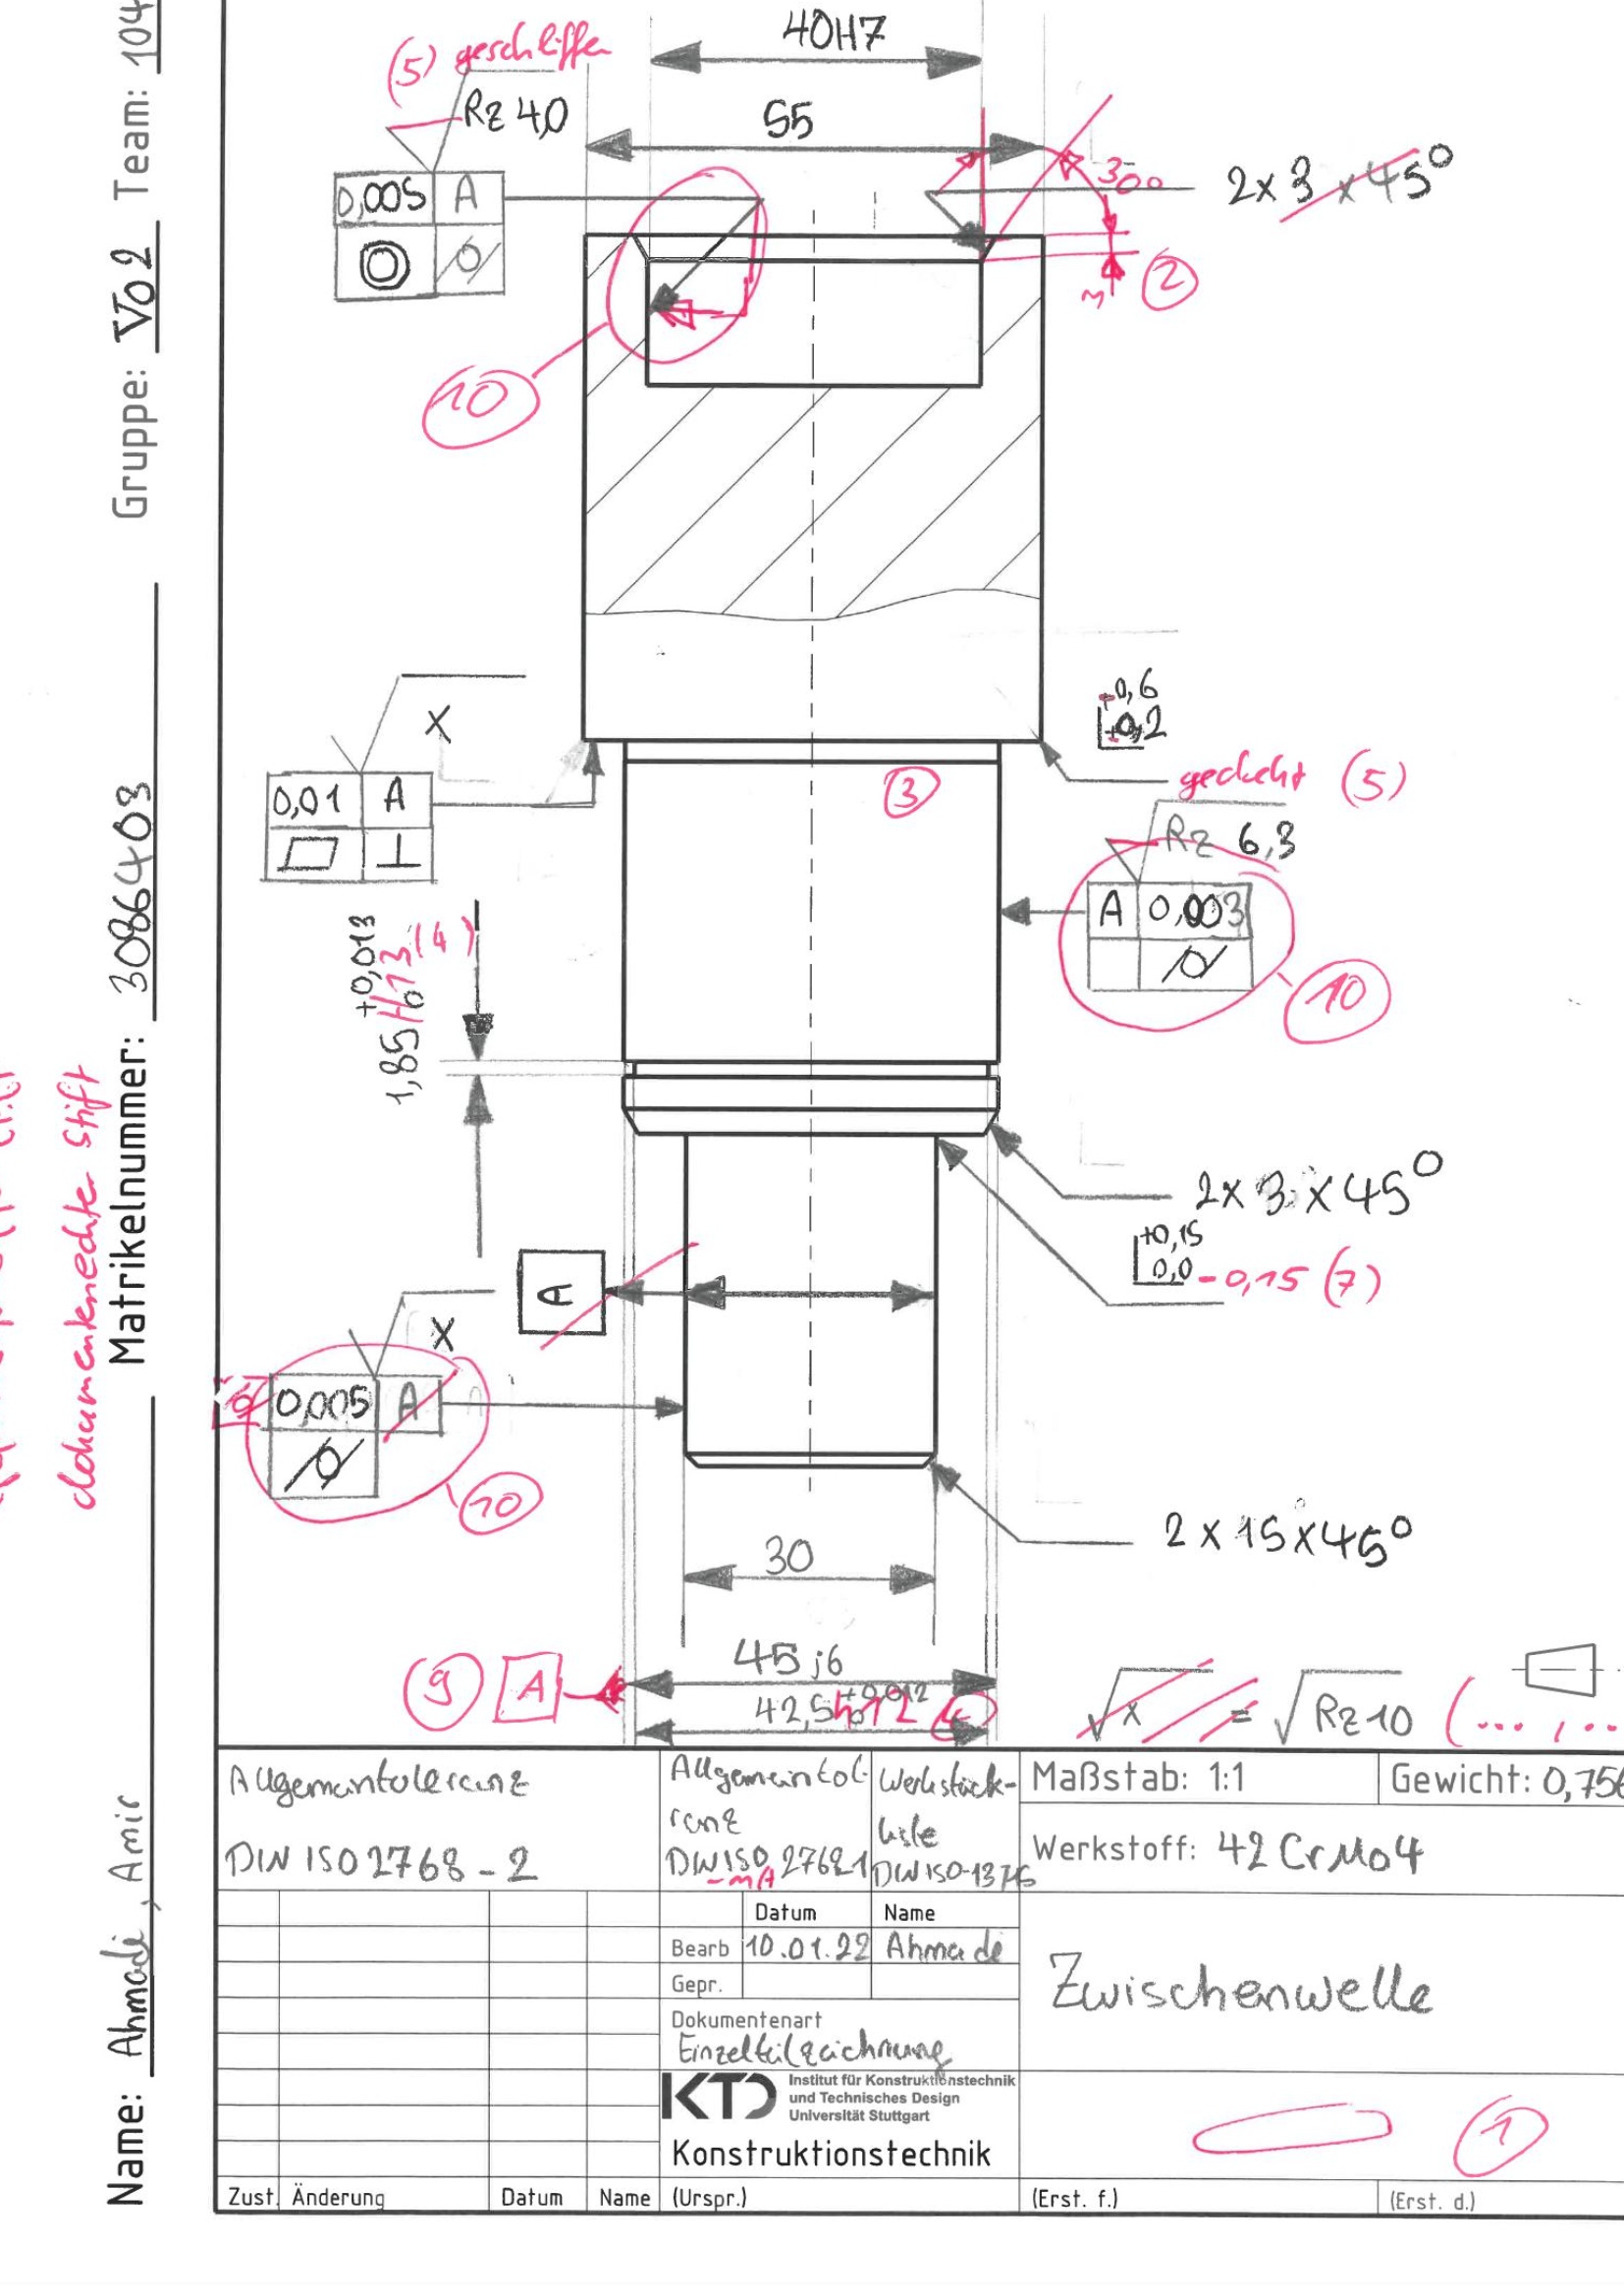 Name: Ahmadi, Amir
Matrikelnummer: 3086403
Gruppe: Vo2 Team: 104
dokumentenechter Stift
40H7
(5) geschliffen
Rz 4,0
55
0,005 A
30°
2x 3 x 45°
3
2
10
+0,6
+0,2
X
gedreht (5)
0,01 A
3
Rz 6,3
A 0,003
10
1,85 +0,013
0
H13 (4)
2x 3 x 45°
+0,15
0,0 -0,15 (7)
A
X
0,005 A
10
2 x 15 x 45°
30
45 j6
9 A
42,5 +0,012
0
h12 (4)
x = Rz 10 (... , ..
Allgemeintoleranz
DIN ISO 2768 - 2
Allgemeintol-
ranz
DIN ISO 2768-1
-mA
Werkstück-
DIN ISO-13715
Maßstab: 1:1
Gewicht: 0,756
Werkstoff: 42 CrMo4
Datum Name
Bearb 10.01.22 Ahmadi
Gepr.
Dokumentenart
Einzelteilzeichnung
Zwischenwelle
KTD
Institut für Konstruktionstechnik
und Technisches Design
Universität Stuttgart
Konstruktionstechnik
1
Zust. Änderung Datum Name (Urspr.) (Erst. f.) (Erst. d.)